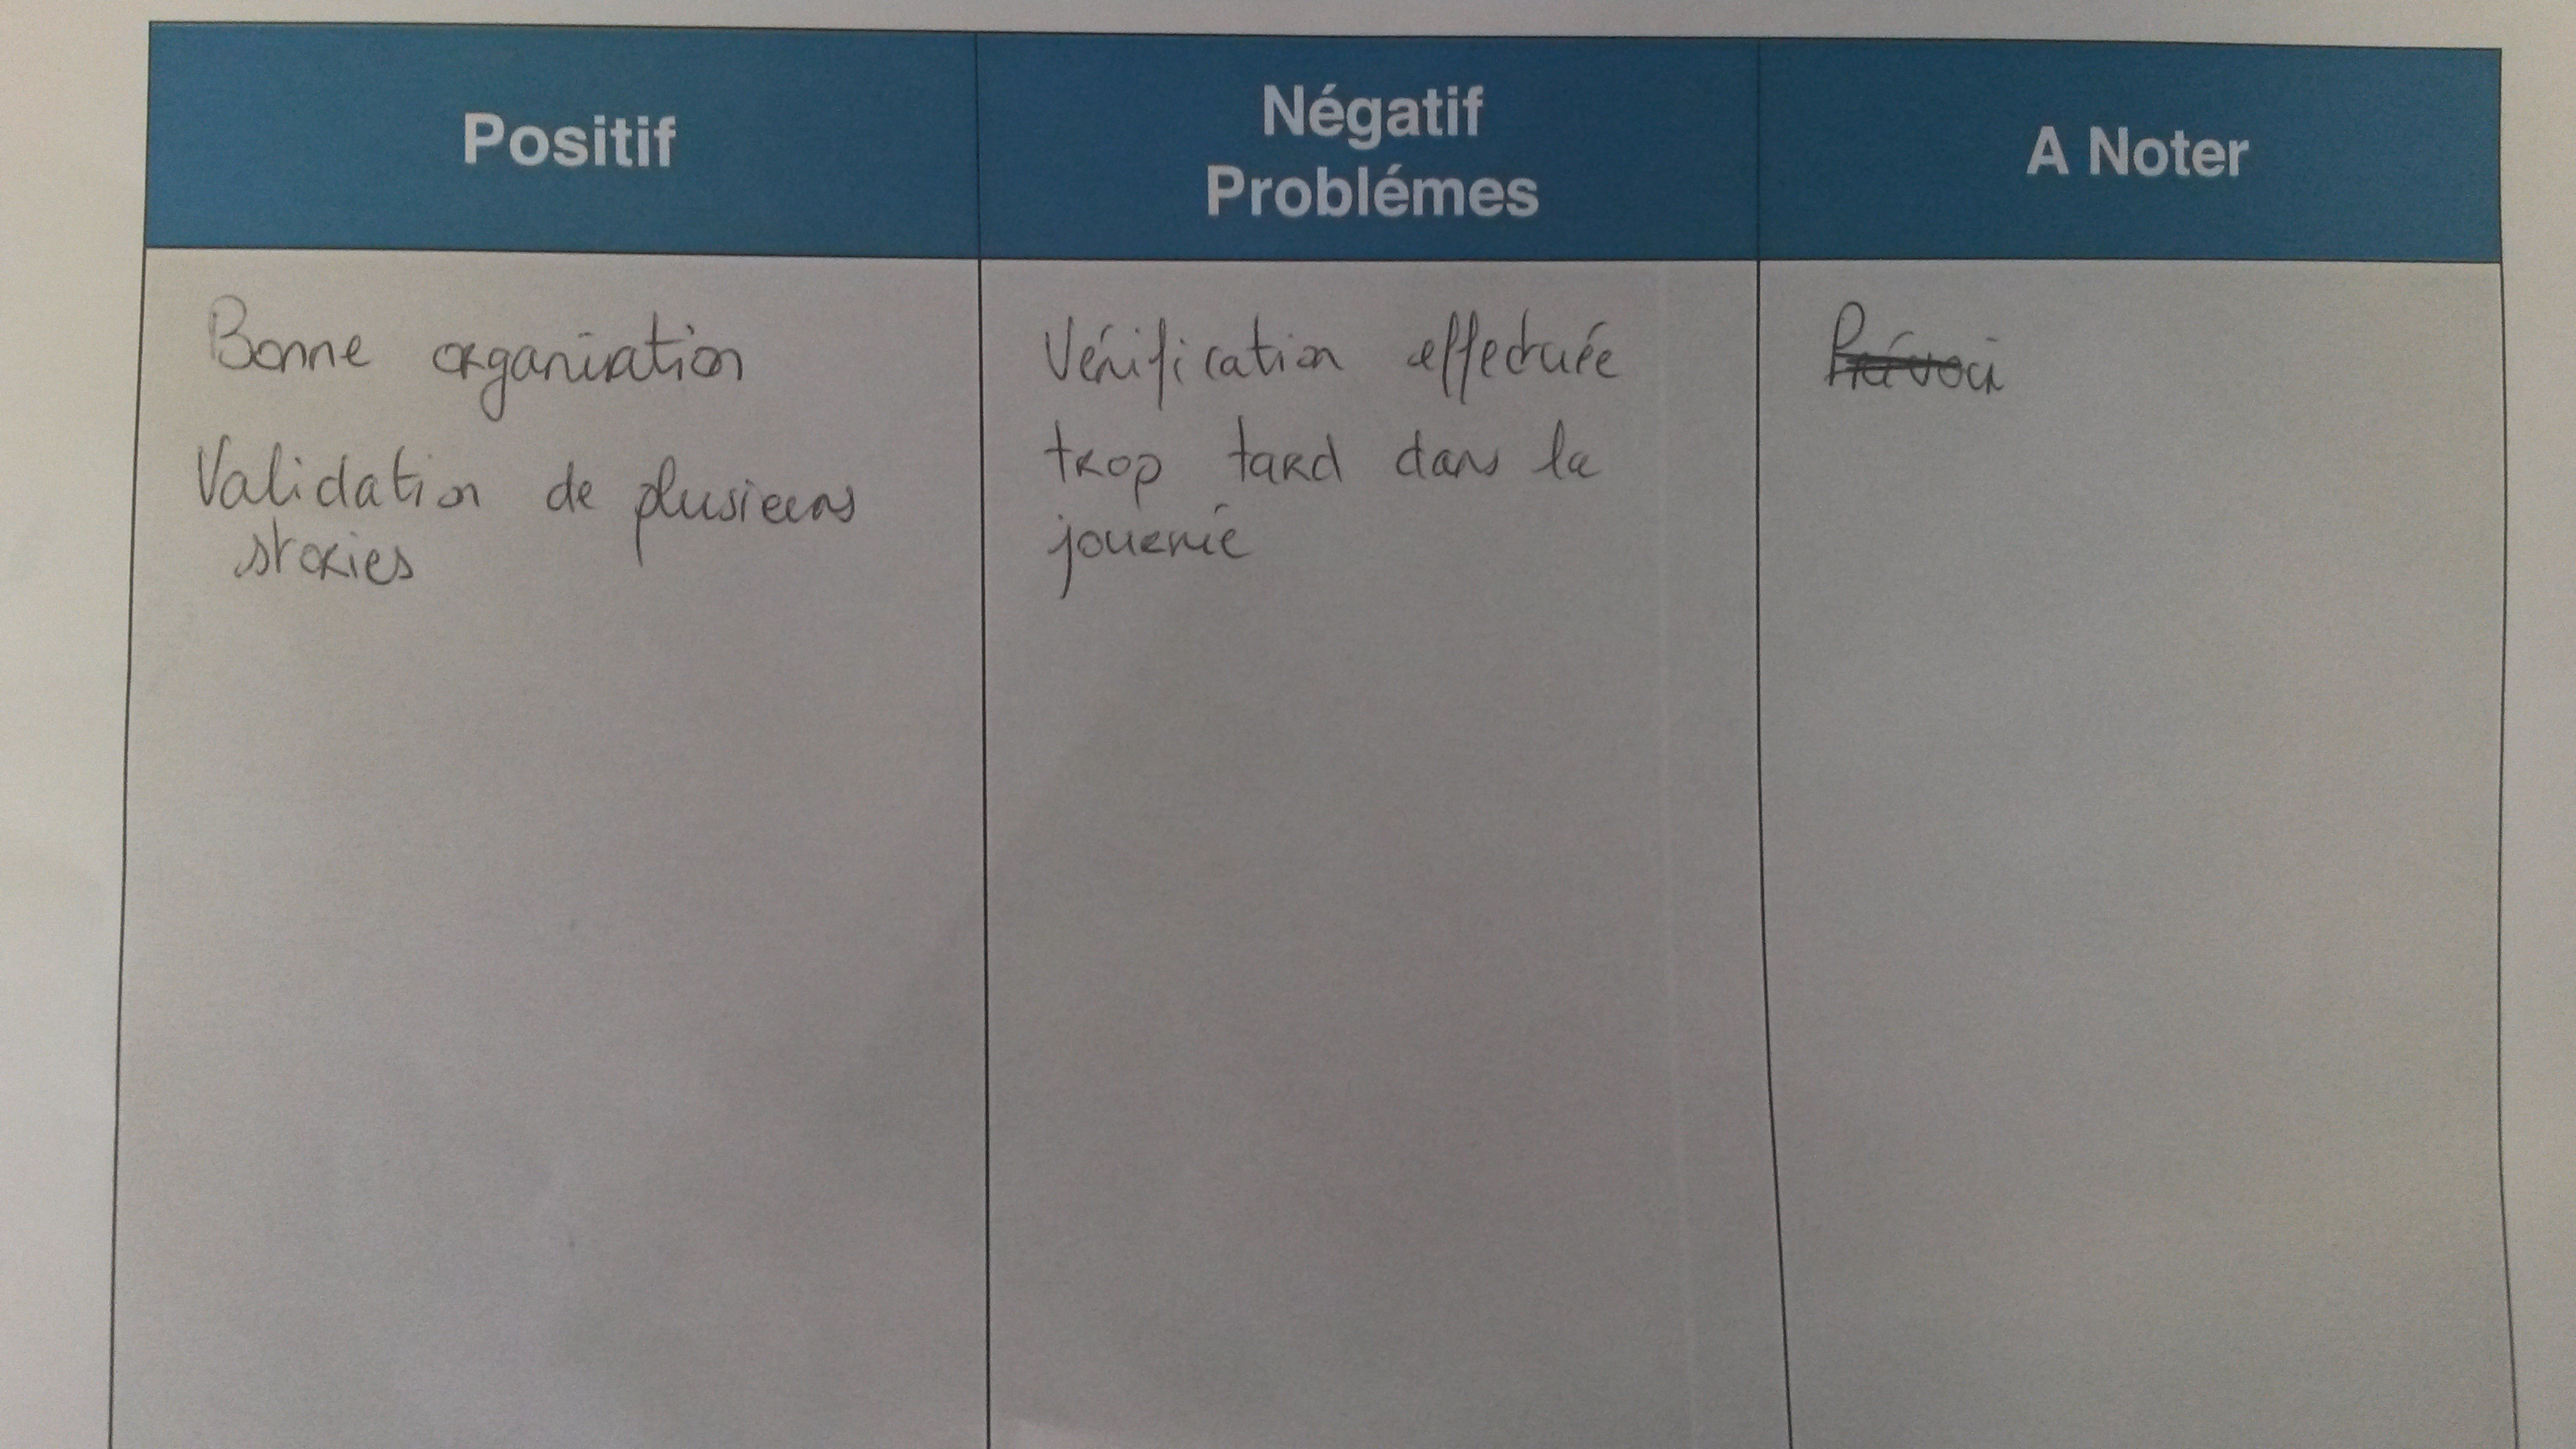 Positif
Négatif
Problémes
A Noter
Bonne organisation
Validation de plusieurs
stories
Vérification effectuée
trop tard dans la
journée